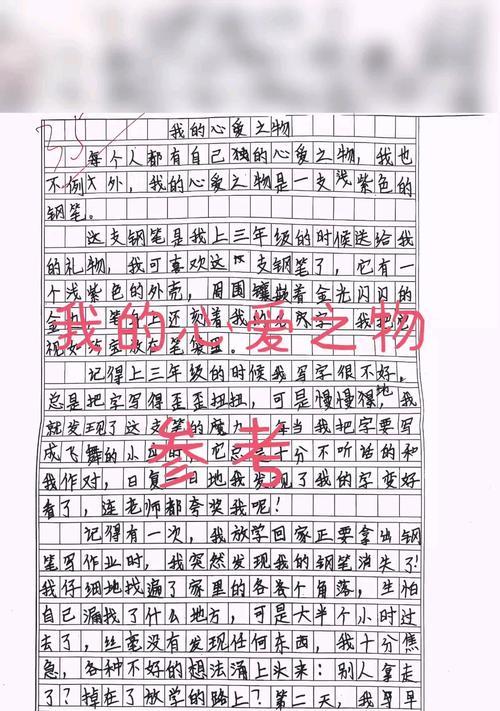 35
我的心爱之物
每个人都有自己独的心爱之物，我也
不例外，我的心爱之物是一支浅紫色的
钢笔。
这支钢笔是我上三年级的时候送给我
的礼物，我可喜欢这支钢笔了，它有一
个浅紫色的外壳，周围镶嵌着金光闪闪的
金 还刻着我的 字 我把它
视如 宝放在笔袋里。
我的心爱之物
记得上三年级的时候我写字很不好。
总是把字写得歪歪扭扭，可是慢慢慢地，我
就发现了这支笔的魔力 当我把字要写
成飞舞的小 时，它总 十分不听话的和
我作对，日复一日地我发现了我的字变好
看了，连老师都夸奖我呢！
参考
记得有一次，我放学回家正要拿出钢
笔写作业时，我突然发现我的钢笔消失了！
我仔细地找遍了家里的各各个角落，生怕
自己漏找了什么地方，可是大半个小时过
去了，丝毫没有发现任何东西，我十分焦
急，各种不好的想法涌上头来：别人拿走
了？掉在了放学的路上？第二天，我早早